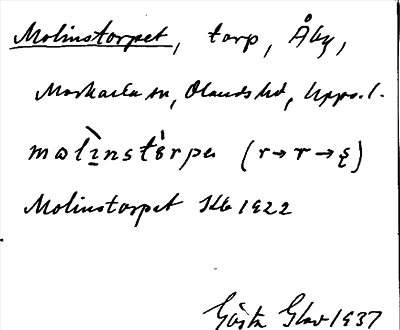 Molinstorpet, torp, Åby,
Morkarla sn, Olands hd, Upps. l.
molinstòrpa (r→r→ę)
Molinstorpet Skb 1922
Gösta Glav 1937